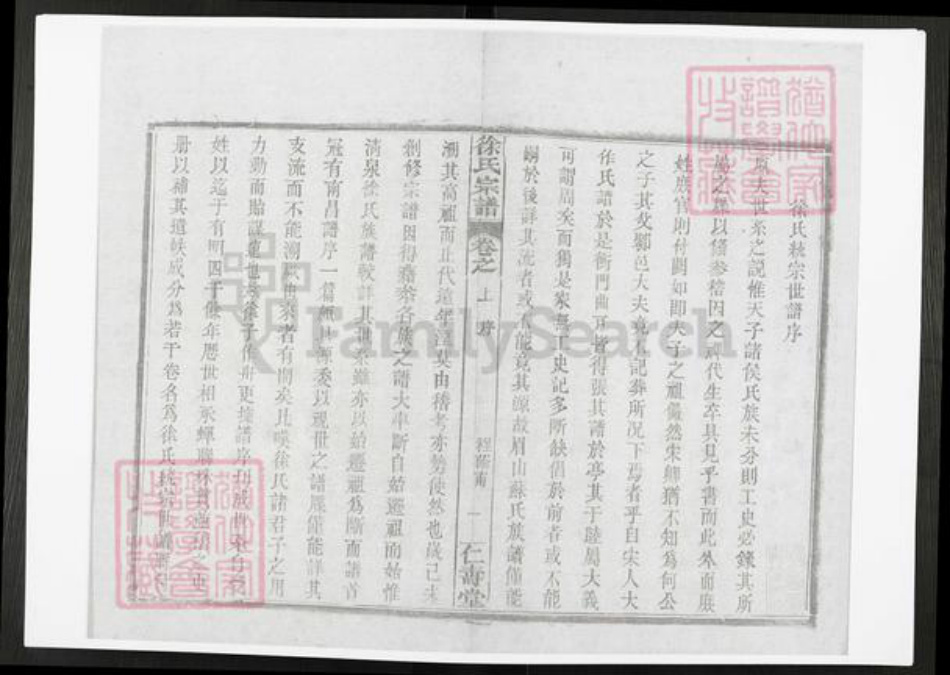 徐氏統宗世譜序
原夫世系之說惟天子諸侯氏族未分則工史必錄其所
屬之譜以備參稽因之歷代生卒具見乎書而此外而庶
姓庶官則付闕如即夫子之祖儼然宋卿猶不知為何公
之子其父鄹邑大夫竟有記葬所况下焉者乎自宋人大
作氏譜於是衡門曲可皆得張其譜於亭其于睦屬大義
可謂周矣而獨是家無工史記多所缺倡於前者或不能
嗣於後詳其流者或不能竟其源故眉山蘇氏族譜僅能
徐氏宗譜 卷之 上 序 一 仁壽堂
溯其高祖而止代遠年湮莫由稽考亦勢使然也歲己未
創修宗譜因得 各族之譜大率斷自始遷祖而始惟
清泉徐氏族譜較詳其世系雖亦以始遷祖為斷而譜首
冠有南昌譜序一篇頗具源委以視世之譜屬僅能詳其
支流而不能溯厥世系者有間矣比 徐氏諸君子之用
力勤而貽謀遠也 徐子 更據譜序
姓以迄于有明四千餘年歷世相承蟬聯珠貫
册以補其遺軼成分為若干卷名為徐氏統宗世譜
FamilySearch